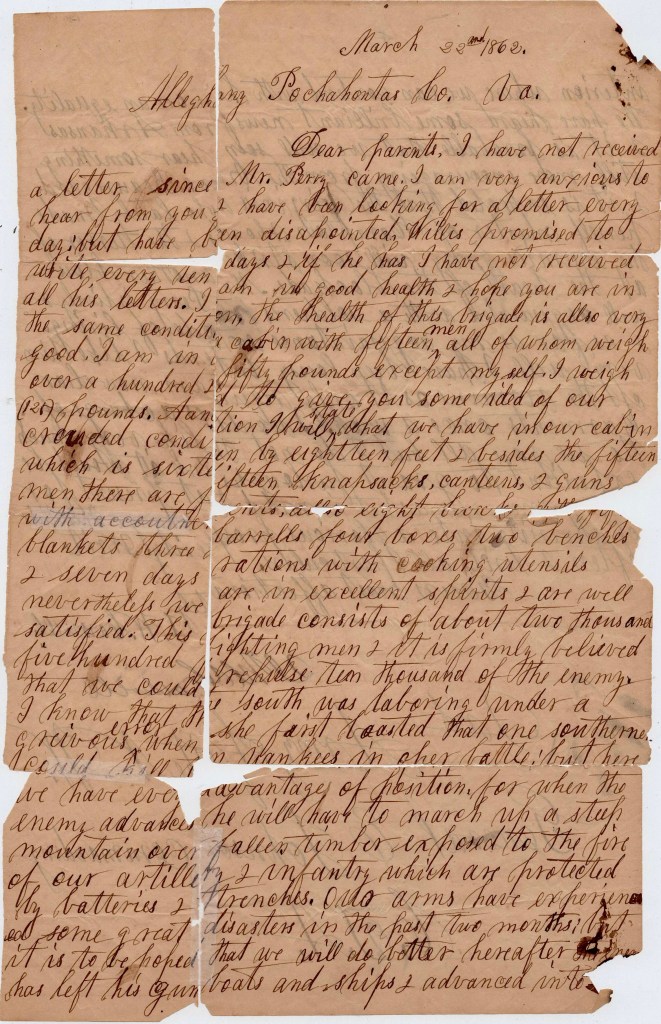 March 22nd 1862.
Alleghany Pochahontas Co. Va.
Dear parents, I have not received
a letter since Mr. Perry came. I am very anxious to
hear from you & have been looking for a letter every
day; but have been disapointed, Willis promised to
write every ten days & if he has I have not received
all his letters. I am in good health & hope you are in
the same condition, the health of this brigade is allso very
good. I am in a cabin with fifteen men, all of whom weigh
over a hundred & fifty pounds except myself. I weigh
(125) pounds. To give you some idea of our
crouded condition I will state what we have in our cabin
which is sixteen by eighteen feet & besides the fifteen
men there are fifteen knapsacks, canteens, & guns
with accoutrements, allso eight
blankets three barrells four boxes two benches
& seven days rations with cooking utensils
nevertheless we are in excellent spirits & are well
satisfied. This brigade consists of about two thousand
five hundred fighting men & it is firmly believed
that we could repulse ten thousand of the enemy.
I know that the south was laboring under a
greivous error when she first boasted that one southerner
could kill ten yankees in oper battle; but here
we have every advantage of position, for when the
enemy advances he will have to march up a steep
mountain over fallen timber exposed to the fire
of our artillery & infantry which are protected
by batteries & trenches. Our arms have experienc
ed some great disasters in the past two months; but
it is to be hoped that we will do better hereafter
has left his gun boats and ships & advanced into